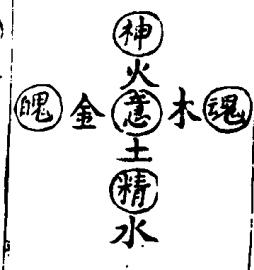 神
火
魄 金 意 木 魂
土
精
水